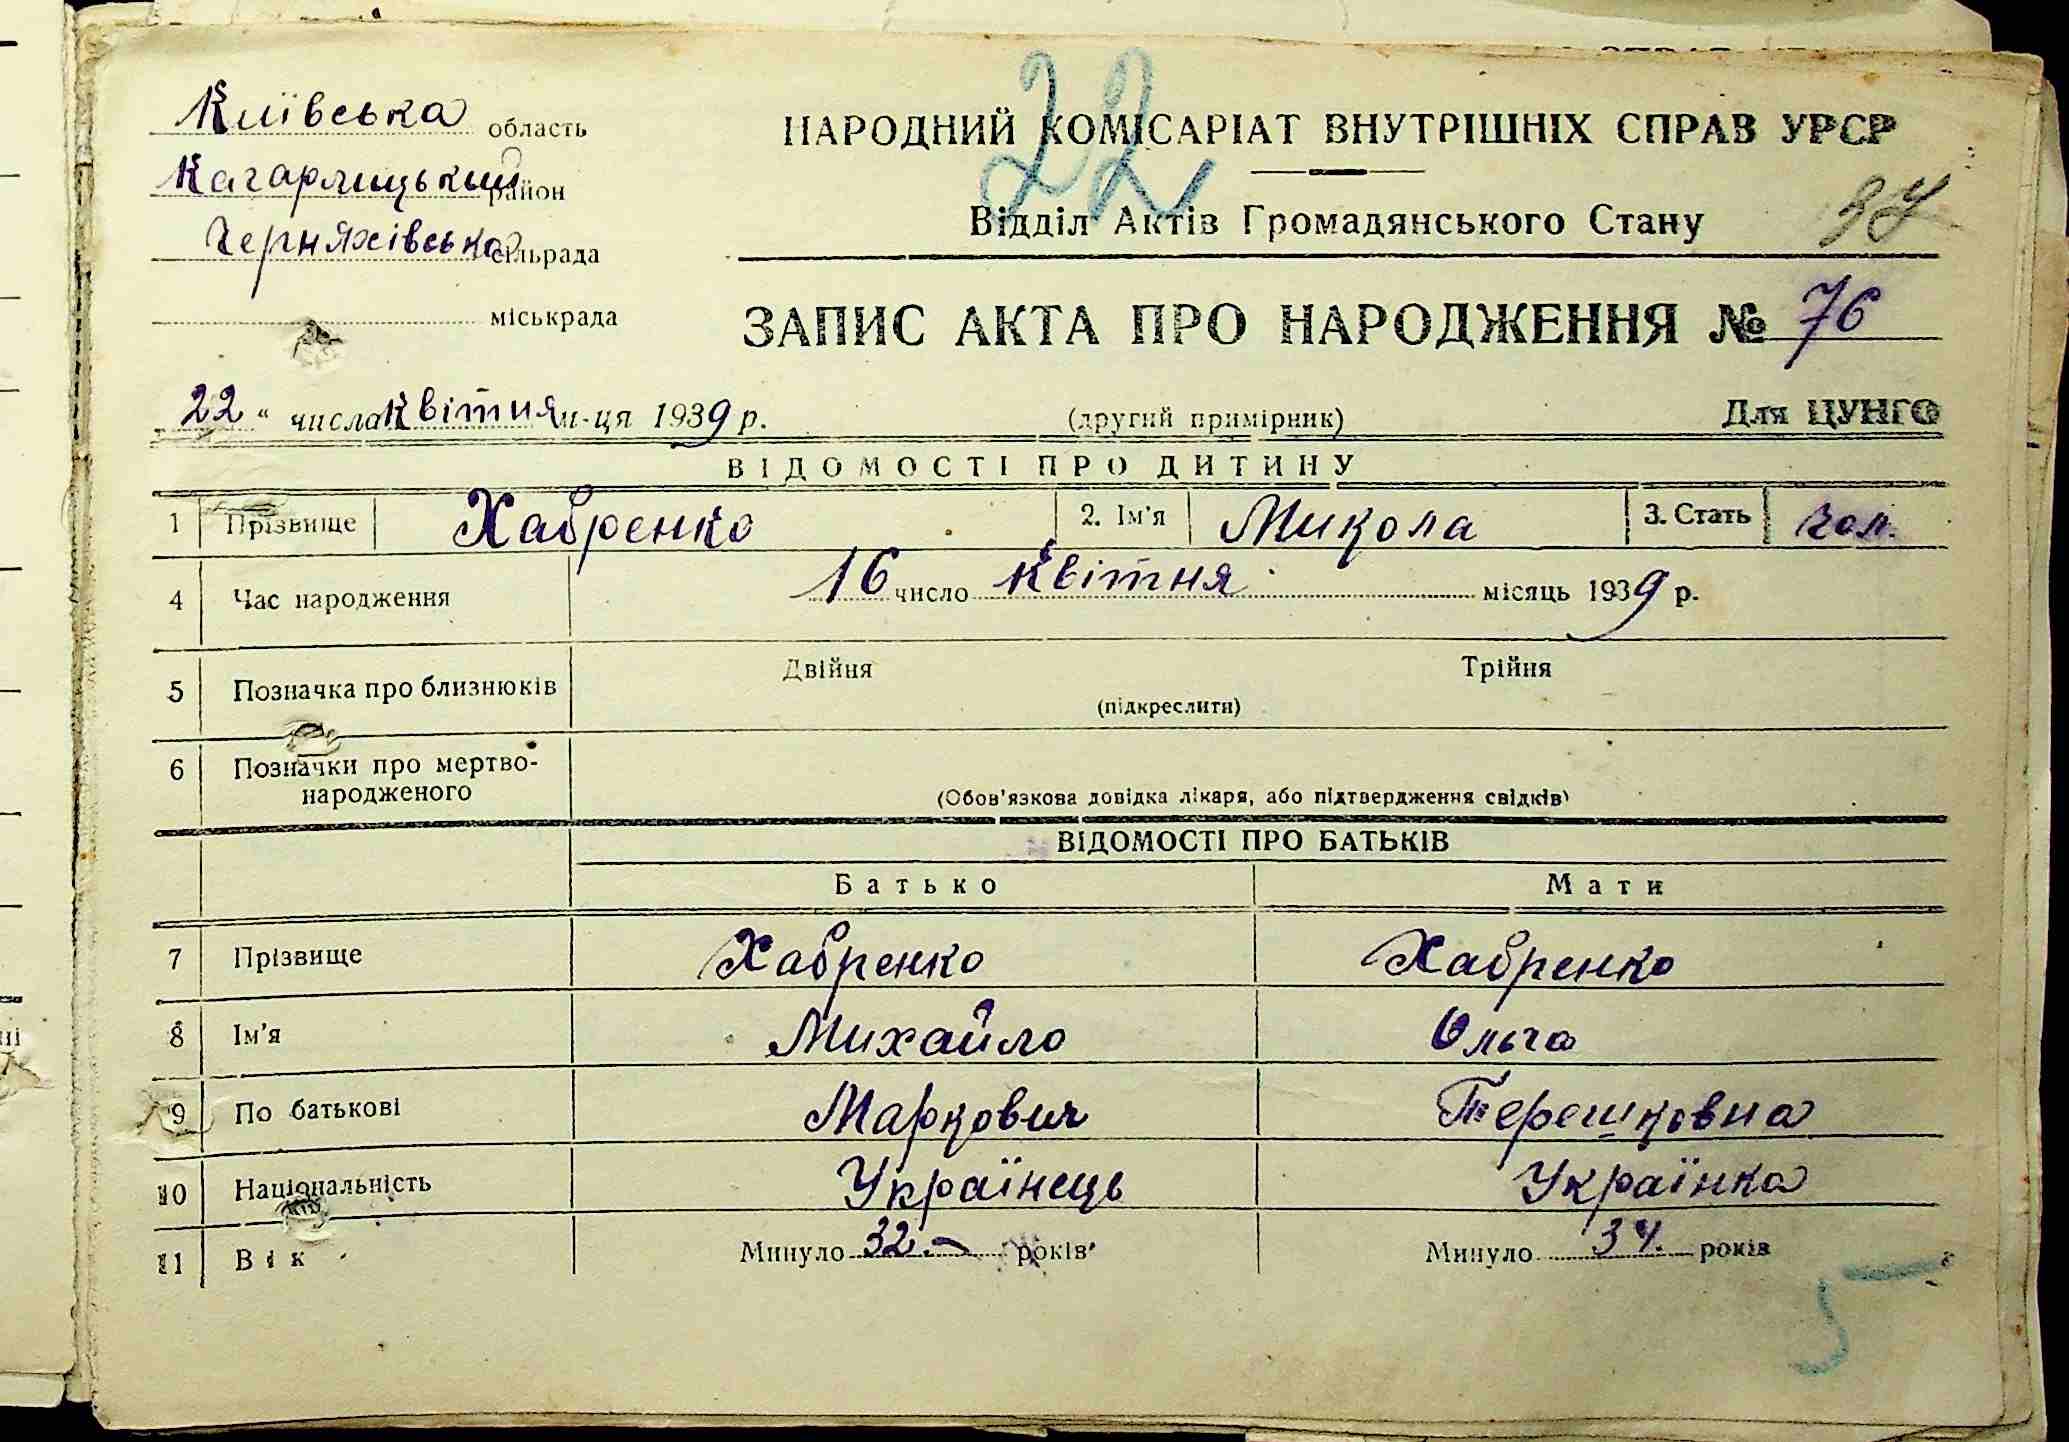 Київська область
Кагарлицький район
Черняхівська сільрада
міськрада
22
НАРОДНИЙ КОМІСАРІАТ ВНУТРІШНІХ СПРАВ УРСР
Відділ Актів Громадянського Стану
ЗАПИС АКТА ПРО НАРОДЖЕННЯ № 76
22 " числа Квітня м-ця 1939 р. (другий примірник) Для ЦУНГО
ВІДОМОСТІ ПРО ДИТИНУ
1 Прізвище Хабренко 2. Ім'я Микола 3. Стать чол.
4 Час народження 16 число Квітня місяць 1939 р.
5 Позначка про близнюків Двійня Трійня
(підкреслити)
6 Позначки про мертво-
народженого
(Обов'язкова довідка лікаря, або підтвердження свідків)
ВІДОМОСТІ ПРО БАТЬКІВ
Батько Мати
7 Прізвище Хабренко Хабренко
8 Ім'я Михайло Ольга
9 По батькові Маркович Терешковна
10 Національність Українець Українка
11 Вік Минуло 32 років Минуло 34 років
5